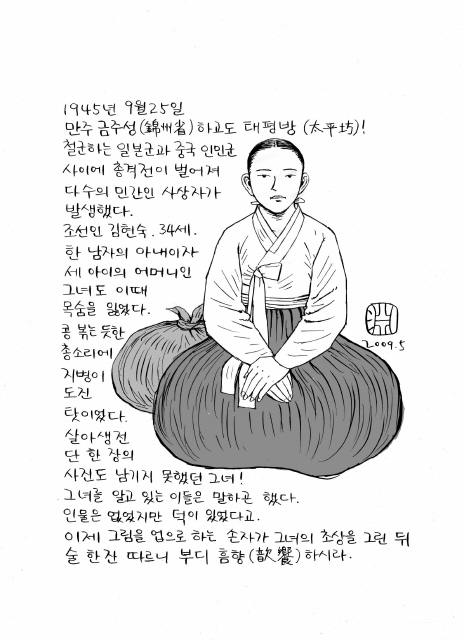 1945년 9월25일
만주 금주성(錦州省)하고도 태평방(太平坊)!
철군하는 일본군과 중국 인민군
사이에 총격전이 벌어져
다수의 민간인 사상자가
발생했다.
조선인 김현숙. 34세.
한 남자의 아내이자
세 아이의 어머니인
그녀도 이때
목숨을 잃었다.
콩 볶는 듯한
총소리에
지병이
도진
탓이었다.
살아생전
단 한 장의
사진도 남기지 못했던 그녀!
그녀를 알고 있는 이들은 말하곤 했다.
인물은 없었지만 덕이 있었다고.
이제 그림을 업으로 하는 손자가 그녀의 초상을 그린 뒤
술 한잔 따르니 부디 흠향(歆饗)하시라.
2009.5